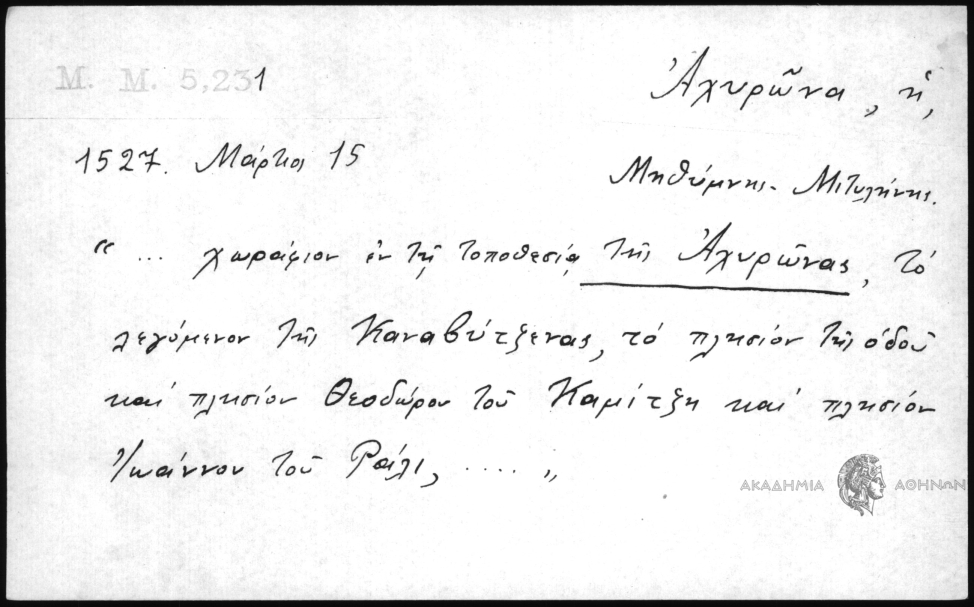 Μ. Μ. 5,231
Ἀχυρῶνα, ἡ,
1527. Μάρτιος 15
Μηθύμνης - Μιτυλήνης.
“ ... χωράφιον ἐν τῇ τοποθεσίᾳ τῆς Ἀχυρῶνας, τό
λεγόμενον τῆς Καναβύτξενας, τό πλησίον τῆς ὁδοῦ
καί πλησίον Θεοδώρου τοῦ Καμίτξη καί πλησίον
Ἰωάννου τοῦ Ράλι, .... „
ΑΚΑΔΗΜΙΑ ΑΘΗΝΩΝ